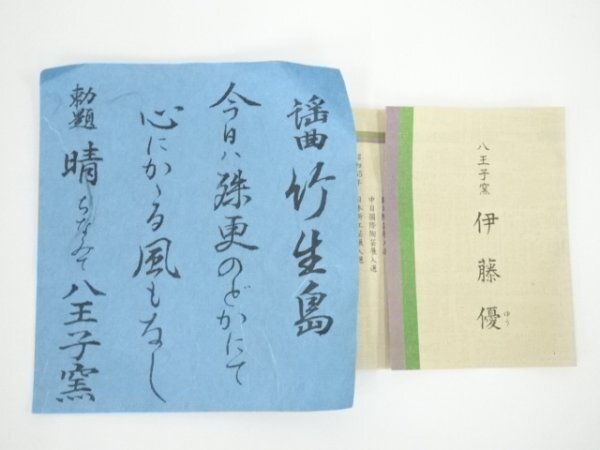 謡曲 竹生島
今日ハ殊更のどかにて
心にかゝる風もなし
勅題 晴 ちなみて 八王子窯
中日国際陶芸展入選
八王子窯
伊藤優
ゆう